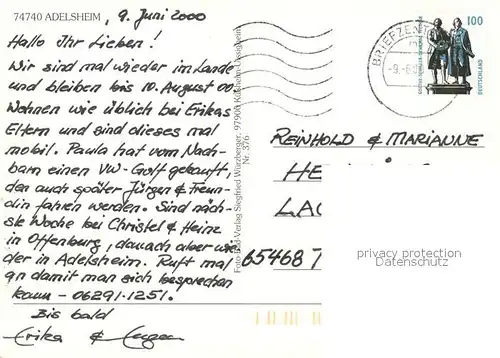 74740 ADELSHEIM, 9. Juni 2000
Hallo Ihr Lieben!
Wir sind mal wieder im Lande
und bleiben bis 10. August 00.
Wohnen wie üblich bei Erikas
Eltern und sind dieses mal
mobil. Paula hat vom Nach-
barn einen VW-Golf gekauft,
den auch später Jürgen & Freun-
din fahren werden. Sind näch-
ste Woche bei Christel & Heinz
in Offenburg, danach aber wie-
der in Adelsheim. Ruft mal
an damit man sich besprechen
kann - 06291-1251.
Bis bald
Erika &
Foto und Verlag Siegfried Würzberger, 97904
Nr. 376
BRIEFZENT
-9.-6.
100
DEUTSCHLAND
REINHOLD & MARIANNE
HE
LA
65468 T
privacy protection
Datenschutz